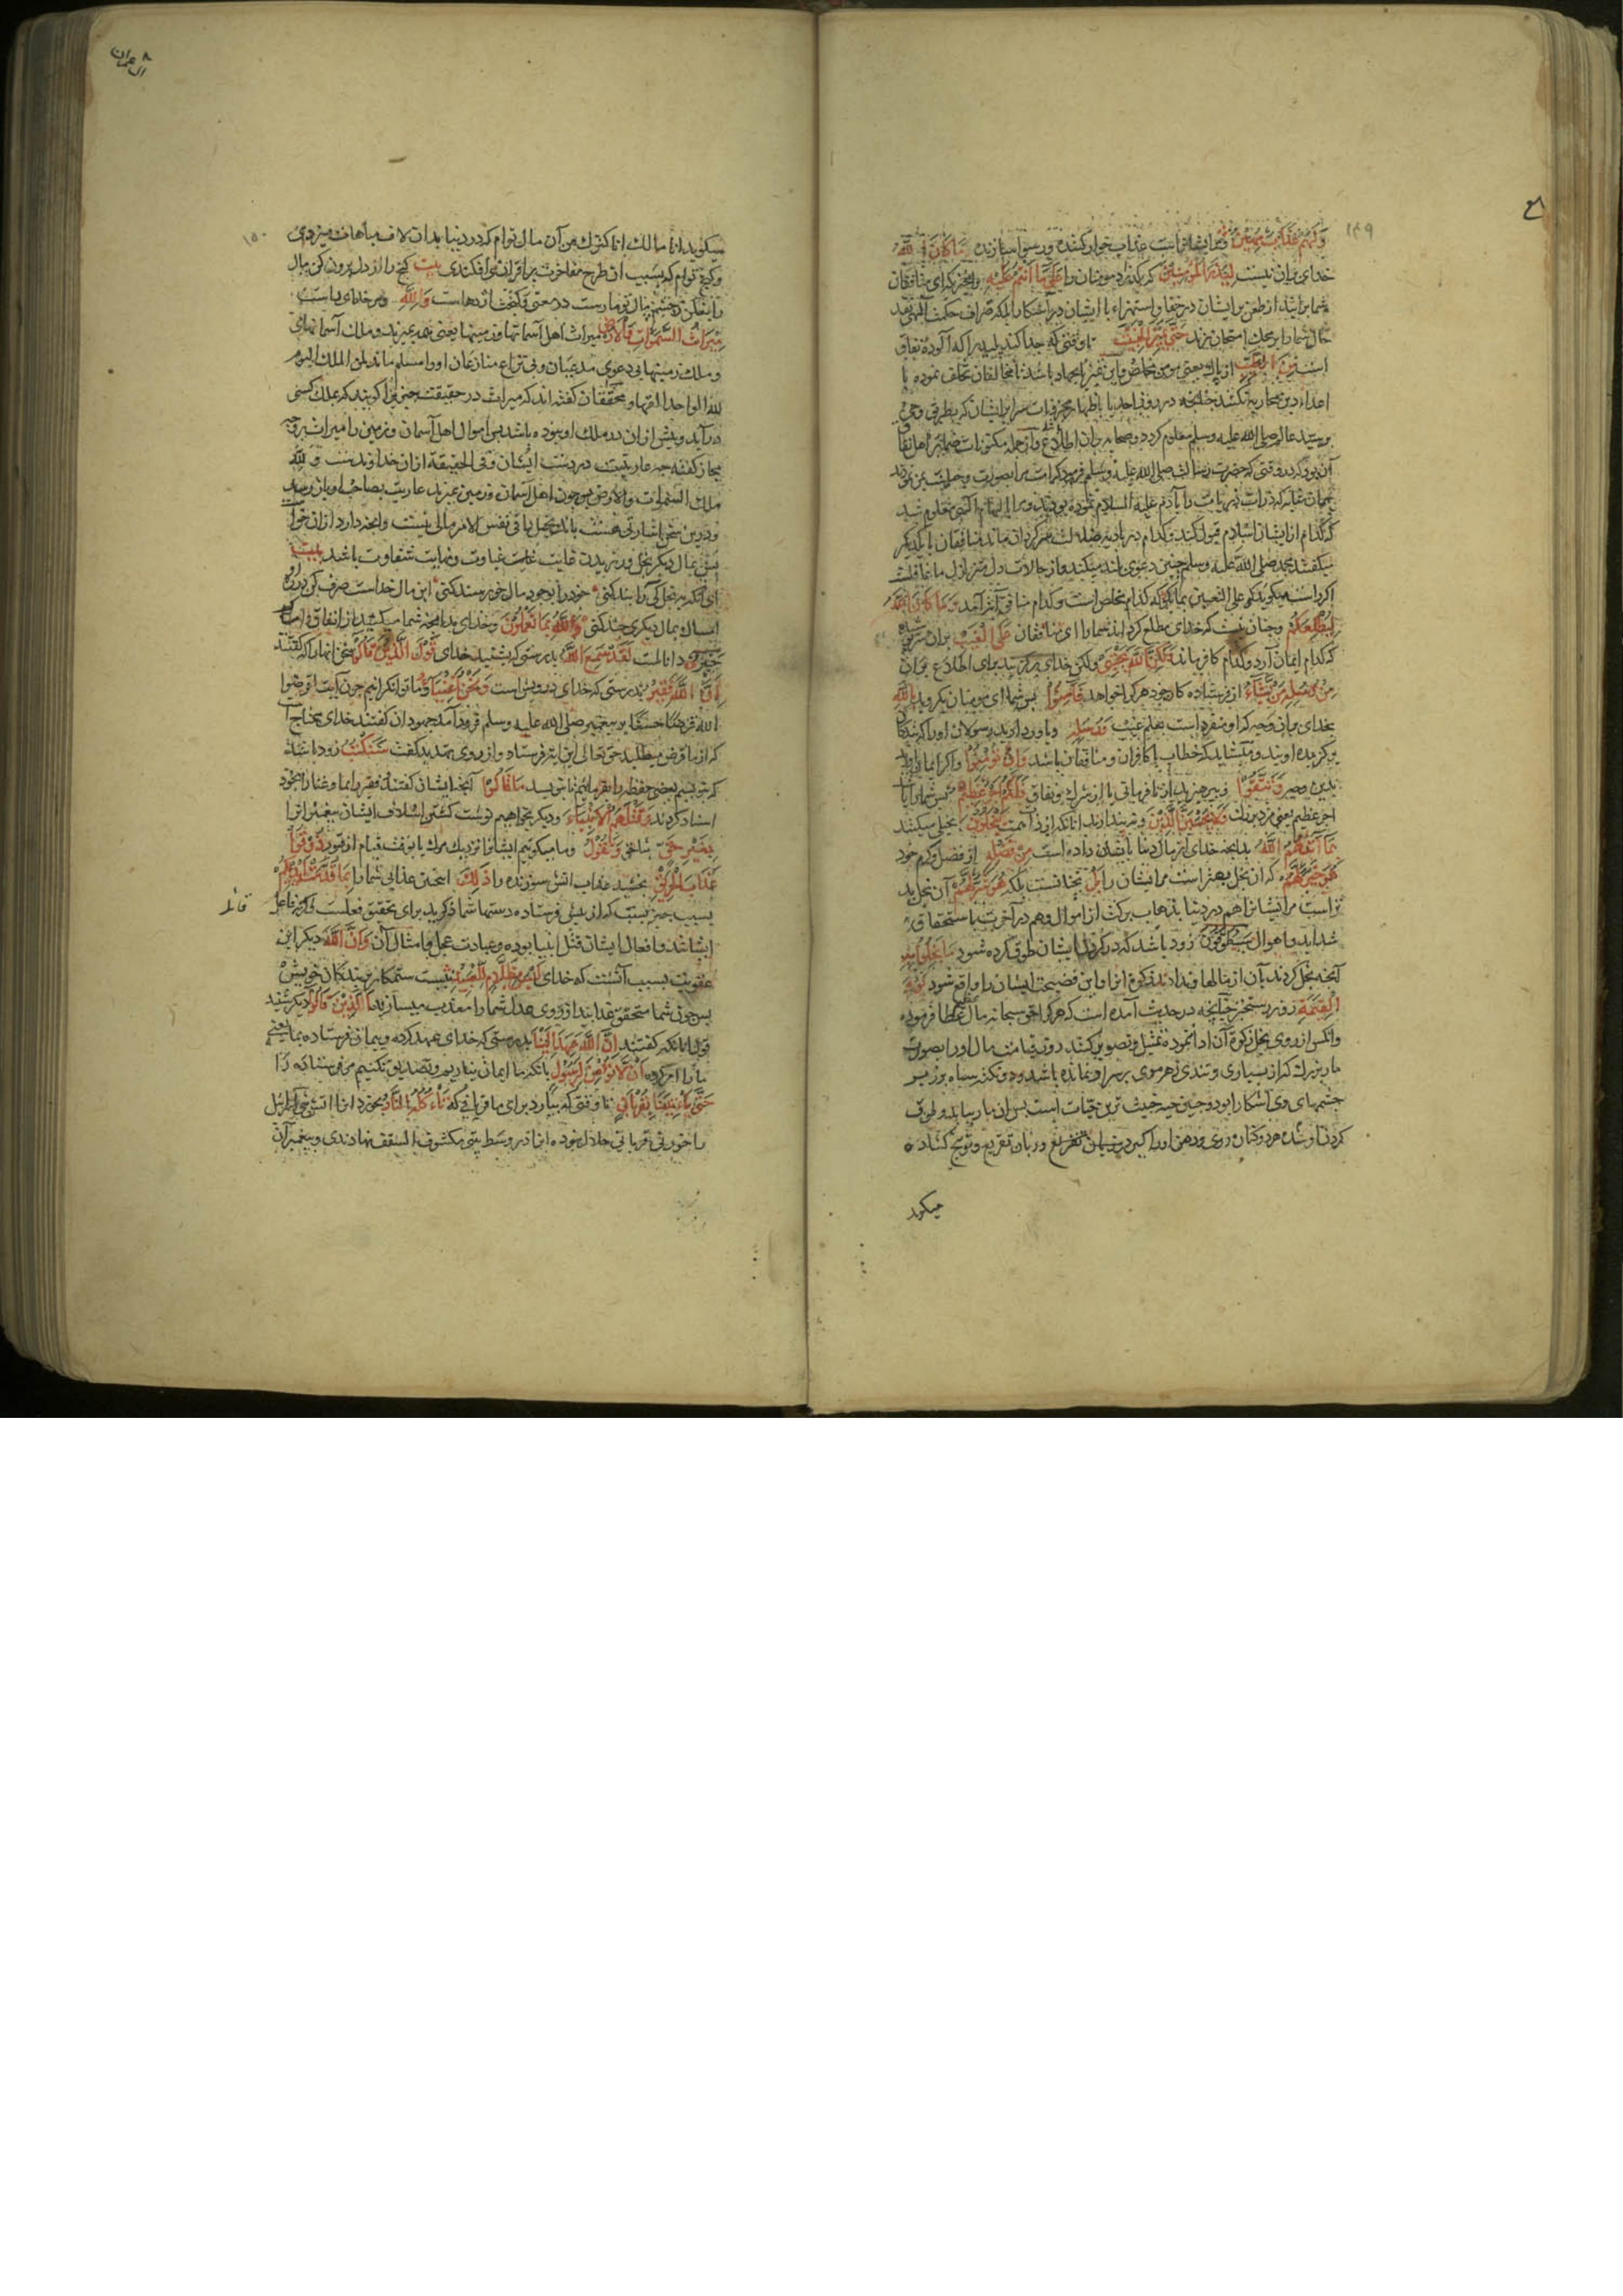 ۱۴۹
وَلَهُمْ عَذَابٌ مُهِينٌ و مر ایشانراست عذاب خوار کننده و رسوا سازنده مَا كَانَ اللَّهُ
خدای بران نیست لِيَذَرَ الْمُؤْمِنِينَ که بگذارد مومنان را عَلَى مَا أَنْتُمْ عَلَيْهِ بر انچه که ای منافقان
شما برانید از طعن بر ایشان در خفا و استهزاء با ایشان در آشکارا بلکه صراف حکمت الهی نقد
حال شما را بر محک امتحان زند حَتَّى يَمِيزَ الْخَبِيثَ تا وقتی که جدا کند پلید را که آلوده نفاق
است مِنَ الطَّيِّبِ از پاک یعنی مومن مخلص و این تمیز بجهاد باشد تا مخالفان تخلف نموده با
اعداء دین محاربه نکنند چنانچه در روز احد یا باظهار مخفیات سرایر ایشان که بطریق وحی
بر سید عالم صلی الله علیه وسلم معلوم کردد و صحابه را بدان اطلاع
آن بود که در وقتی که حضرت رسالت صلی الله علیه وسلم فرمود که امت مرا بصورت بر من نمودند
همچنان که ذریت را بآدم علیه السلام نموده بودند و مرا الهام الهی معلوم شد
که کدام از ایشان اسلام قبول کند و کدام در بادیه ضلالت سرکردان ماند منافقان با یکدیگر
میگفتند محمد صلی الله علیه وسلم چنین دعوی بلند میکند و از حالات دل ما غافلست
اگر راست میگوید گو علی التعیین بما بگو که کدام مخلص است و کدام منافق آیت آمد وَمَا كَانَ اللَّهُ
لِيُطْلِعَكُمْ و چنان نیست که خدای مطلع گرداند شما را ای منافقان عَلَى الْغَيْبِ بران سر
که کدام ایمان آرد و کدام کافر ماند وَلَكِنَّ اللَّهَ يَجْتَبِي و لکن خدای برگزیند برای اطلاع بران
مِنْ رُسُلِهِ مَنْ يَشَاءُ از فرستاده کان خود هر کرا خواهد فَآمِنُوا پس شما ای مومنان بگروید بِاللَّهِ
بخدای بران وجه که او منفرد است بعلم غیب وَرُسُلِهِ و باور دارید رسولان او را که بندگان
برگزیده اویند و میشاید که خطاب با کافران و منافقان باشد وَإِنْ تُؤْمِنُوا و اگر ایمان آرید
بدین وجه وَتَتَّقُوا و بپرهیزید از نافرمانی یا از شرک و نفاق فَلَكُمْ أَجْرٌ عَظِيمٌ پس شما را باشد
اجر عظیم یعنی مزد بزرک وَلَا يَحْسَبَنَّ الَّذِينَ و نپندارند انانکه از زحمت يَبْخَلُونَ بخیلی میکنند
بِمَا آتَاهُمُ اللَّهُ بدانچه خدای از مال دنیا بایشان داده است مِنْ فَضْلِهِ از فضل و کرم خود
هُوَ خَيْرًا لَهُمْ که ان بخل بهتر است مر ایشان را بَلْ نه چنانست بلکه هُوَ شَرٌّ لَهُمْ آن بخل بد
تر است مر ایشانرا هم در دنیا بذهاب برکت از اموال و هم در آخرت باستحقاق
شداید و اهوال سَيُطَوَّقُونَ زود باشد که در گردن ایشان طوق کرده شود مَا بَخِلُوا بِهِ
آنچه بخل کردند بآن از مالها و نداد زکوة انرا و این فضیحت ایشان را واقع شود يَوْمَ
الْقِيَامَةِ روز رستخیز چنانچه در حدیث آمده است که هر کرا حق سبحانه مالی عطا فرموده
وانکس از روی بخل زکوة آن ادا ننموده تمثیل و تصویر کنند روز قیامت مال او را بصورت
مار بزرک که از بسیاری و تندی زهر موی بر سر او نمانده باشد و دو نکته سیاه بر زبر
چشمهای وی آشکارا بود و چنین حیه خبیث ترین حیات است پس ان مار بیاید و طوق
کردن او شده هر دو کنار روی و دهن او را گیرد و زبان تقریع و توبیخ کشاده
میگوید
۸
ال عمران
۱۵۰
میگوید انا مالک انا کنزک من آن مال توام که در دنیا بدان لاف مباهات میزدی
و گنج توام که بسبب ان طرح مفاخرت بر اقران می افکندی بیت گنج را از دل برون کن مال
را بفکن ز چشم مال تو مارست در معنی و گنجت اژدهاست وَلِلَّهِ و مر خدای راست
مِيرَاثُ السَّمَوَاتِ وَالْأَرْضِ میراث اهل آسمانها و زمینها یعنی همه بمیرند و ملک آسمانها
و ملک زمینها بی دعوی مدعیان و بی نزاع منازعان او را مسلم ماند لمن الملک الیوم
لله الواحد القهار و محققان گفته اند که میراث در حقیقت چیزی را گویند که بملک کسی
در آید و پیش ازان در ملک او نبوده باشد پس اموال اهل آسمان و زمین را میراث بر وجه
مجاز گفته چه عاریتیست در دست ایشان و فی الحقیقة ازان خداوندست و لله
ملک السموات والارض پس چون اهل آسمان و زمین بمیرند عاریت بصاحب او باز رسد
و درین سخن اشارتی هست بانکه بخیل را فی نفس الامر مالی نیست وانچه دارد ازان خداست
پس بمال دیگر بخل ورزیدن غایت غباوت و نهایت شقاوت باشد بیت
ای انکه در بخل بند کنی خود را بوجود مال خورسند کنی این مال خداست صرف کن در ره او
امساک بمال دیگری چند کنی وَاللَّهُ بِمَا تَعْمَلُونَ و خدای بدانچه شما میکنید از انفاق و امساک
خَبِيرٌ دانا است لَقَدْ سَمِعَ اللَّهُ بدرستی که بشنید خدای قَوْلَ الَّذِينَ قَالُوا سخن انها را که گفتند
إِنَّ اللَّهَ فَقِيرٌ بدرستی که خدای درویش است وَنَحْنُ أَغْنِيَاءُ و ما توانگرانیم چون آیت اقرضوا
الله قرضا حسنا بر پیغمبر صلی الله علیه وسلم فرود آمد جهودان گفتند خدای محتاج است
که از ما قرض میطلبد حق تعالی این آیت فرستاد و از روی تهدید گفت سَنَكْتُبُ زود باشد
که بنویسیم یعنی حفظه را بفرمائیم تا بنویسند مَا قَالُوا آنچه ایشان گفتند و فقر را بما و غنا را بخود
اسناد کردند وَقَتْلَهُمُ الْأَنْبِيَاءَ و دیگر بخواهیم نوشت کشتن اسلاف ایشان پیغمبران را
بِغَيْرِ حَقٍّ بناحق وَنَقُولُ و ما میگوئیم ایشانرا نزدیک مرک یا بوقت قیام از قبور ذُوقُوا
عَذَابَ الْحَرِيقِ بچشید عذاب اتش سوزنده را ذَلِكَ این عذاب شما را بِمَا قَدَّمَتْ أَيْدِيكُمْ
بسبب چیزیست که از پیش فرستاده دستها شما ذکر ید برای تحقیق فعلست
ایشانند و افعال ایشان قتل انبیا بوده و عبادت عجل و امثال آن وَأَنَّ اللَّهَ دیگر این
عقوبت بسبب آنست که خدای لَيْسَ بِظَلَّامٍ لِلْعَبِيدِ نیست ستمکار بر بندکان خویش
پس چون شما مستحق عذابید از روی عدل شما را معذب میسازد الَّذِينَ قَالُوا دیگر شنید
قول انانکه گفتند إِنَّ اللَّهَ عَهِدَ إِلَيْنَا بدرستی که خدای عهد کرده و پیمان فرستاده بما یعنی
ما را امر کرده أَنْ لَا نُؤْمِنَ لِرَسُولٍ بانکه ما ایمان نیاریم و تصدیق نکنیم مر فرستاده را
حَتَّى يَأْتِيَنَا بِقُرْبَانٍ تا وقتی که بیارد برای ما قربانی که تَأْكُلُهُ النَّارُ بخورد انرا اتش
را خوردن قربانی حلال نبوده انرا در وسط بیتی مکشوف السقف نهادندی و پیغمبر آن